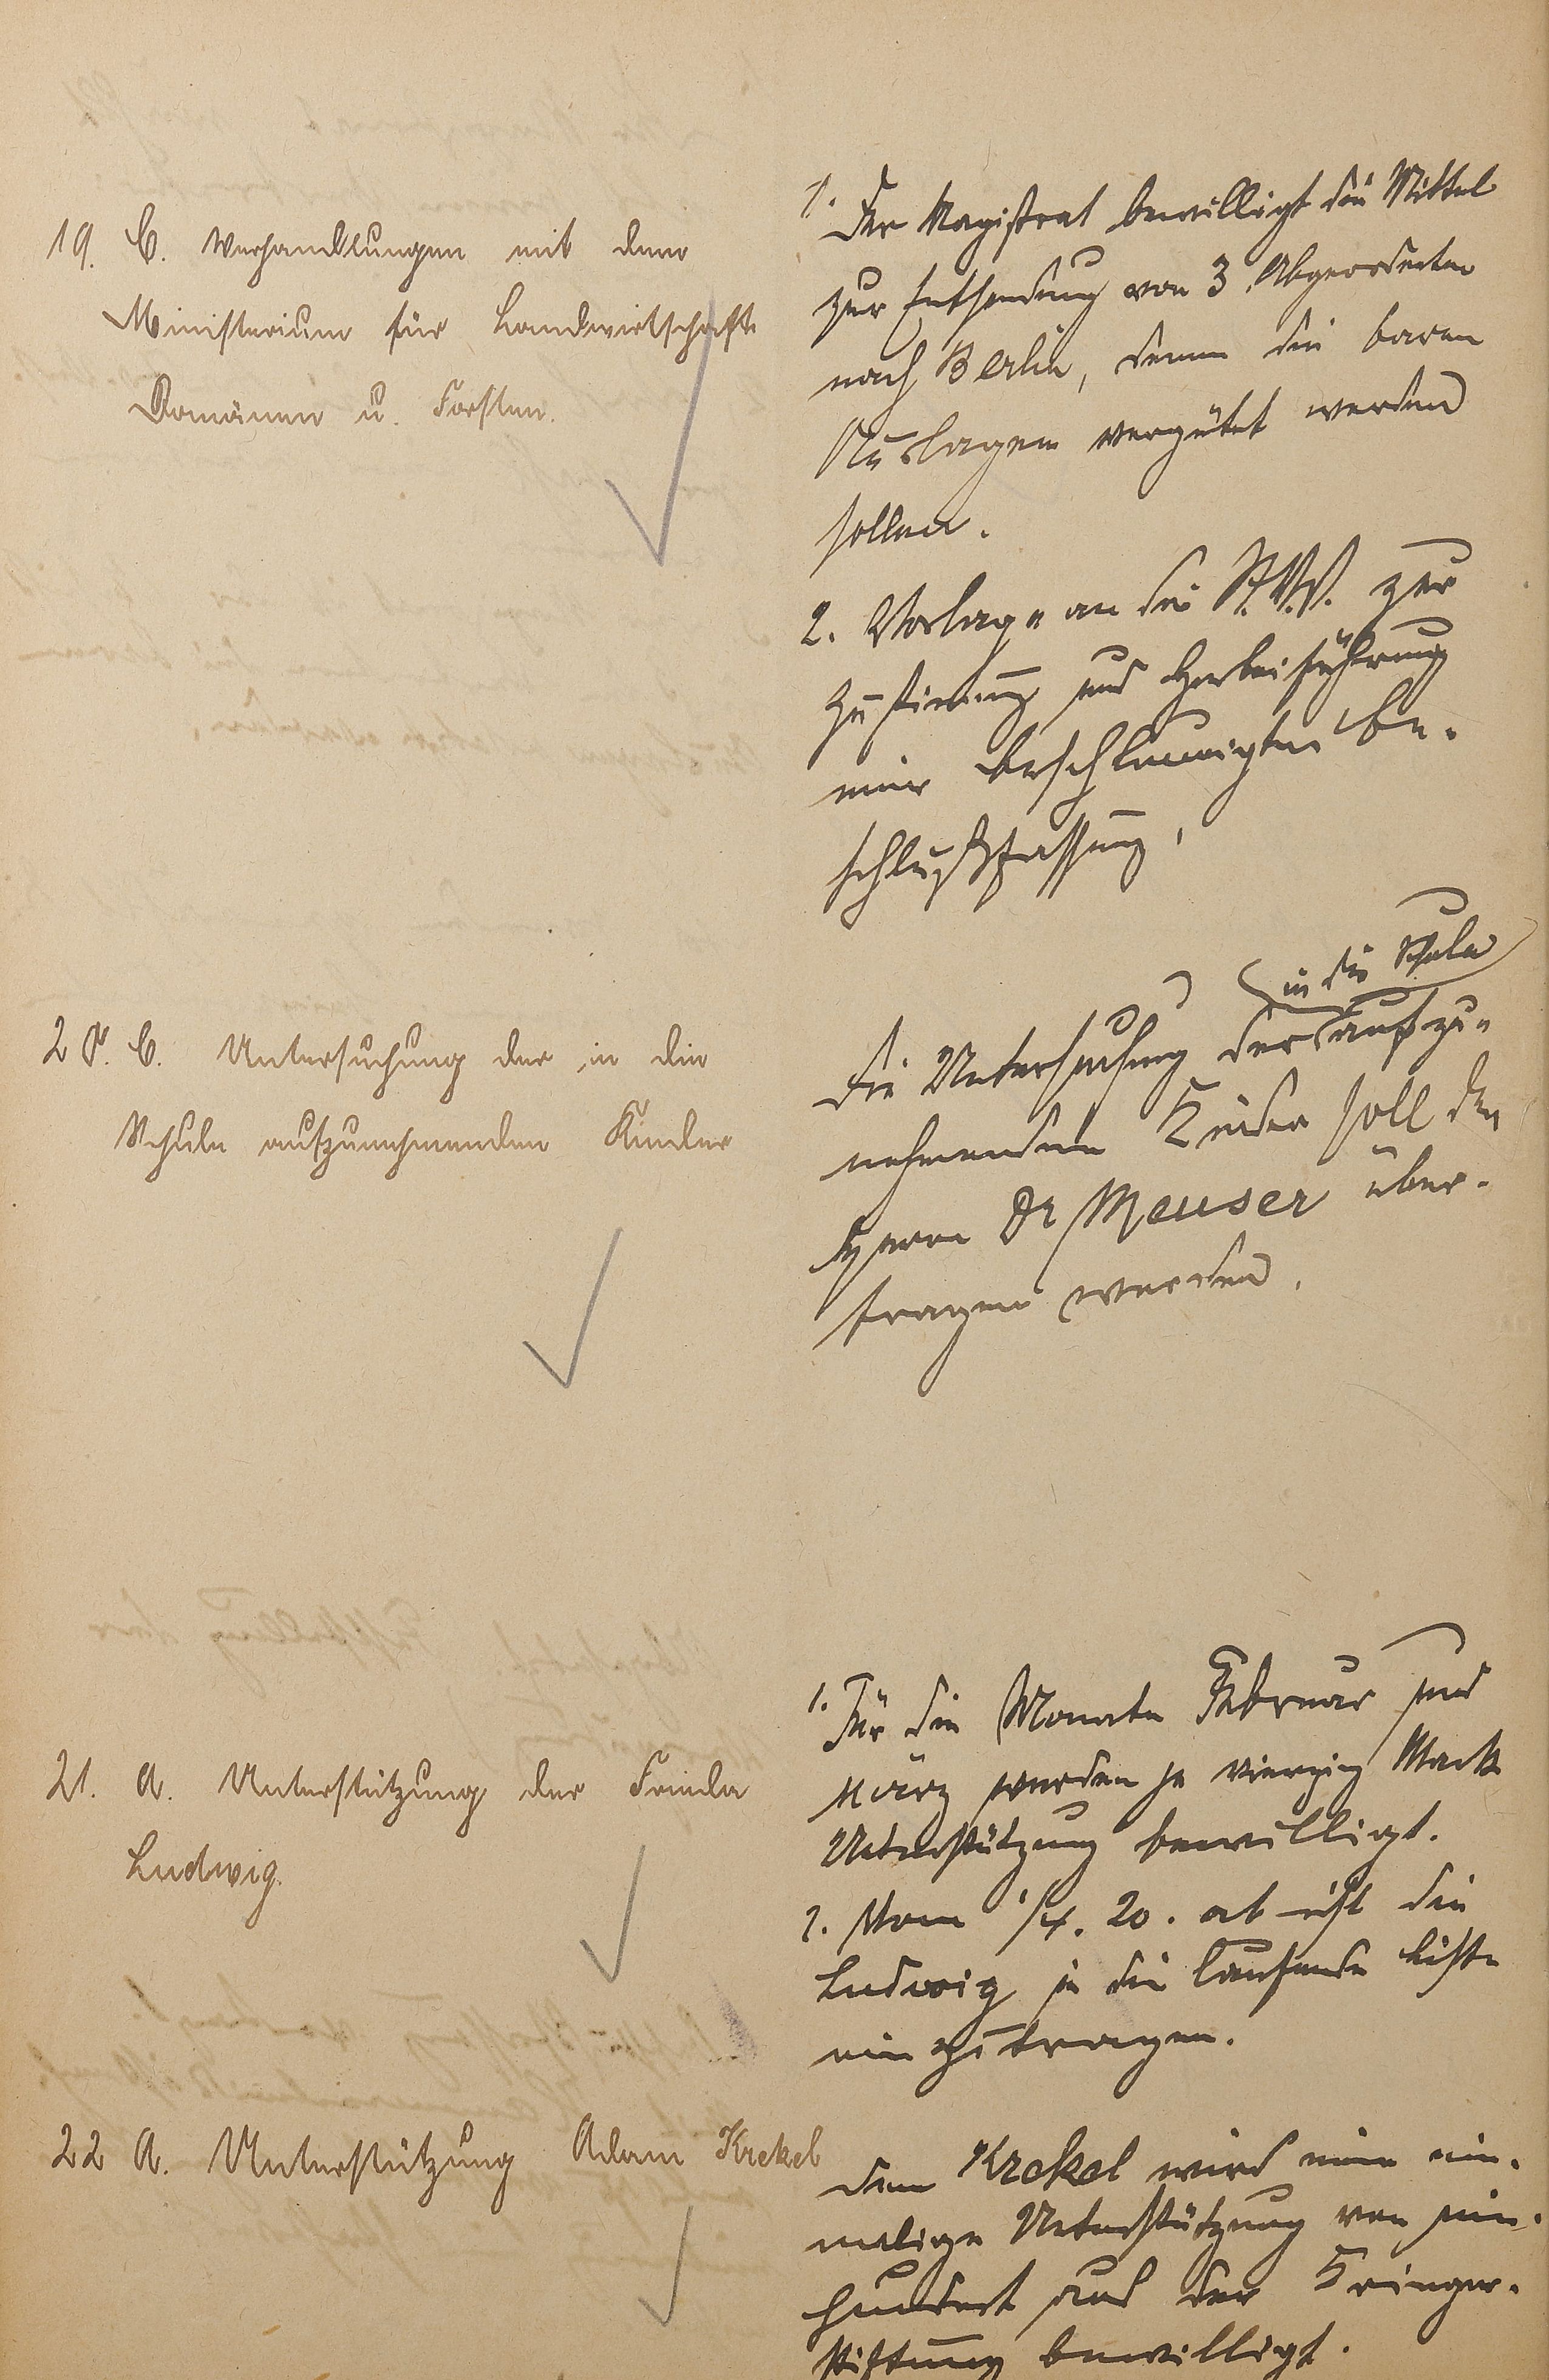 19. C. Verhandlungen mit dem
Ministerium für Landwirtschaft
Domänen u. Forsten.
1. Der Magistrat bewilligt die Mittel
zur Entsendung von 3 Abgeordneten
nach Berlin, denen die baren
Auslagen vergütet werden
sollen.
2. Vorlage an die St.V.V. zur
Zustimmung und Herbeiführung
einer beschleunigten Be-
schlußfassung.
20. C. Untersuchung der in die
Schule aufzunehmenden Kinder
in die Schule
Die Untersuchung der aufzu-
nehmenden Kinder soll dem
Herrn Dr Meuser über-
tragen werden.
21. A. Unterstützung der Frieda
Ludwig.
1. Für die Monate Februar und
März werden je vierzig Mark
Unterstützung bewilligt.
2. Vom 1/4. 20. ab ist die
Ludwig in die laufende Liste
einzutragen.
22 A. Unterstützung Adam Krekel
Dem Krekel wird eine ein-
malige Unterstützung von ein-
hundert aus der Krieger-
stiftung bewilligt.